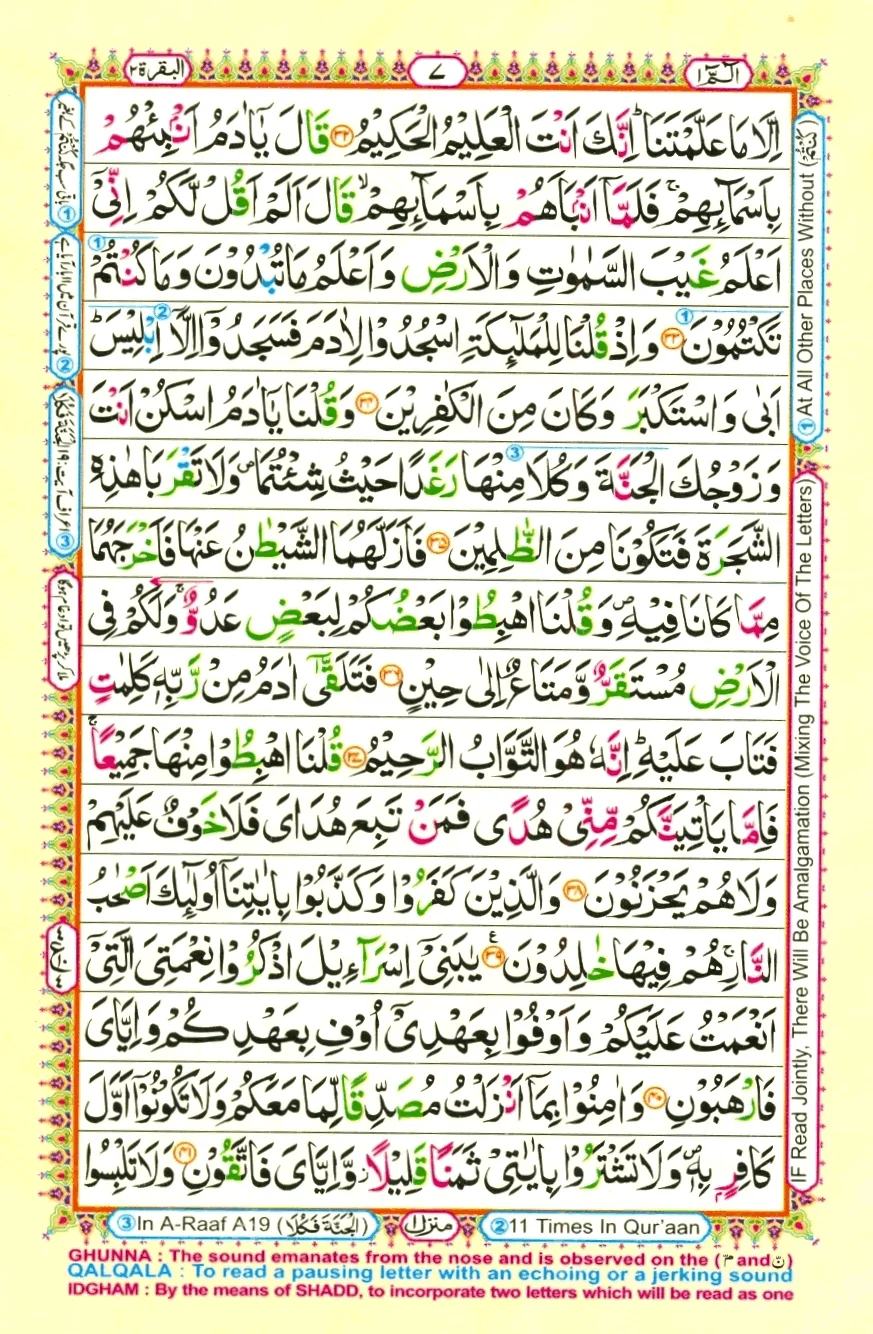 الٓمّٓ ١
٧
البقرة ٢
اِلَّا مَا عَلَّمْتَنَا ؕ اِنَّكَ اَنْتَ الْعَلِیْمُ الْحَكِیْمُ ﴿۳۲﴾ قَالَ یٰۤاٰدَمُ اَنْۢبِئْهُمْ
بِاَسْمَآىِٕهِمْ ۚ فَلَمَّاۤ اَنْۢبَاَهُمْ بِاَسْمَآىِٕهِمْ ۙ قَالَ اَلَمْ اَقُلْ لَّكُمْ اِنِّیْۤ
اَعْلَمُ غَیْبَ السَّمٰوٰتِ وَ الْاَرْضِ وَ اَعْلَمُ مَا تُبْدُوْنَ وَ مَا كُنْتُمْ
تَكْتُمُوْنَ ﴿۳۳﴾ وَ اِذْ قُلْنَا لِلْمَلٰٓىِٕكَةِ اسْجُدُوْا لِاٰدَمَ فَسَجَدُوْۤا اِلَّاۤ اِبْلِیْسَ ؕ
اَبٰی وَ اسْتَكْبَرَ وَ كَانَ مِنَ الْكٰفِرِیْنَ ﴿۳۴﴾ وَ قُلْنَا یٰۤاٰدَمُ اسْكُنْ اَنْتَ
وَ زَوْجُكَ الْجَنَّةَ وَ كُلَا مِنْهَا رَغَدًا حَیْثُ شِئْتُمَا ۪ وَ لَا تَقْرَبَا هٰذِهِ
الشَّجَرَةَ فَتَكُوْنَا مِنَ الظّٰلِمِیْنَ ﴿۳۵﴾ فَاَزَلَّهُمَا الشَّیْطٰنُ عَنْهَا فَاَخْرَجَهُمَا
مِمَّا كَانَا فِیْهِ ۪ وَ قُلْنَا اهْبِطُوْا بَعْضُكُمْ لِبَعْضٍ عَدُوٌّ ۚ وَ لَكُمْ فِی
الْاَرْضِ مُسْتَقَرٌّ وَّ مَتَاعٌ اِلٰی حِیْنٍ ﴿۳۶﴾ فَتَلَقّٰۤی اٰدَمُ مِنْ رَّبِّهٖ كَلِمٰتٍ
فَتَابَ عَلَیْهِ ؕ اِنَّهٗ هُوَ التَّوَّابُ الرَّحِیْمُ ﴿۳۷﴾ قُلْنَا اهْبِطُوْا مِنْهَا جَمِیْعًا ۚ
فَاِمَّا یَاْتِیَنَّكُمْ مِّنِّیْ هُدًی فَمَنْ تَبِعَ هُدَایَ فَلَا خَوْفٌ عَلَیْهِمْ
وَ لَا هُمْ یَحْزَنُوْنَ ﴿۳۸﴾ وَ الَّذِیْنَ كَفَرُوْا وَ كَذَّبُوْا بِاٰیٰتِنَاۤ اُولٰٓىِٕكَ اَصْحٰبُ
النَّارِ ۚ هُمْ فِیْهَا خٰلِدُوْنَ ﴿۳۹﴾ یٰبَنِیْۤ اِسْرَآءِیْلَ اذْكُرُوْا نِعْمَتِیَ الَّتِیْۤ
اَنْعَمْتُ عَلَیْكُمْ وَ اَوْفُوْا بِعَهْدِیْۤ اُوْفِ بِعَهْدِكُمْ وَ اِیَّایَ
فَارْهَبُوْنِ ﴿۴۰﴾ وَ اٰمِنُوْا بِمَاۤ اَنْزَلْتُ مُصَدِّقًا لِّمَا مَعَكُمْ وَ لَا تَكُوْنُوْۤا اَوَّلَ
كَافِرٍۭ بِهٖ ۪ وَ لَا تَشْتَرُوْا بِاٰیٰتِیْ ثَمَنًا قَلِیْلًا ؗ وَّ اِیَّایَ فَاتَّقُوْنِ ﴿۴۱﴾ وَ لَا تَلْبِسُوا
① At All Other Places Without (كُنْتُمْ)
IF Read Jointly, There Will Be Amalgamation (Mixing The Voice Of The Letters)
② 11 Times In Qur'aan
منزل ١
③ In A-Raaf A19 (الْجَنَّةَ فَكُلَا)
GHUNNA : The sound emanates from the nose and is observed on the (مّ and نّ)
QALQALA : To read a pausing letter with an echoing or a jerking sound
IDGHAM : By the means of SHADD, to incorporate two letters which will be read as one